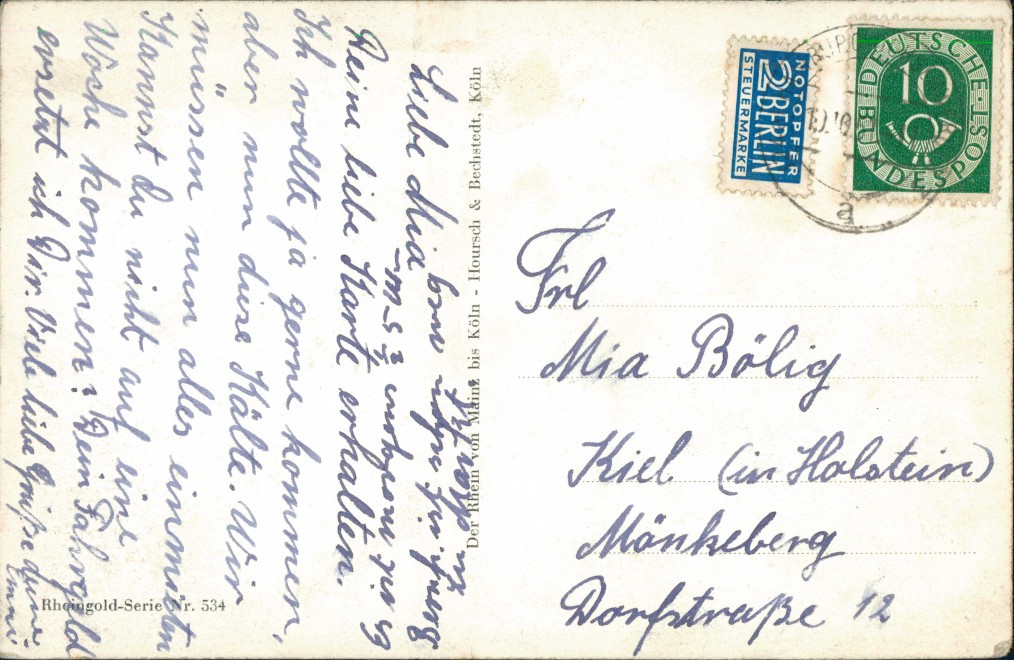 Liebe Mia
Deine liebe Karte erhalten.
Ich wollte ja gerne kommen,
aber nun diese Kälte. Wir
müssen nun alles einmisten
Kannst du nicht auf eine
Woche kommen? Dein Fahrgeld
ersetzt ich Dir. Viele liebe Grüße deine
Emmi.
Der Rhein von Mainz bis Köln - Hoursch & Bechstedt, Köln
Rheingold-Serie Nr. 534
NOTOPFER
2 BERLIN
STEUERMARKE
DEUTSCHE
BUNDESPOST
10
a
Frl
Mia Bölig
Kiel (in Holstein)
Mönkeberg
Dorfstraße 12